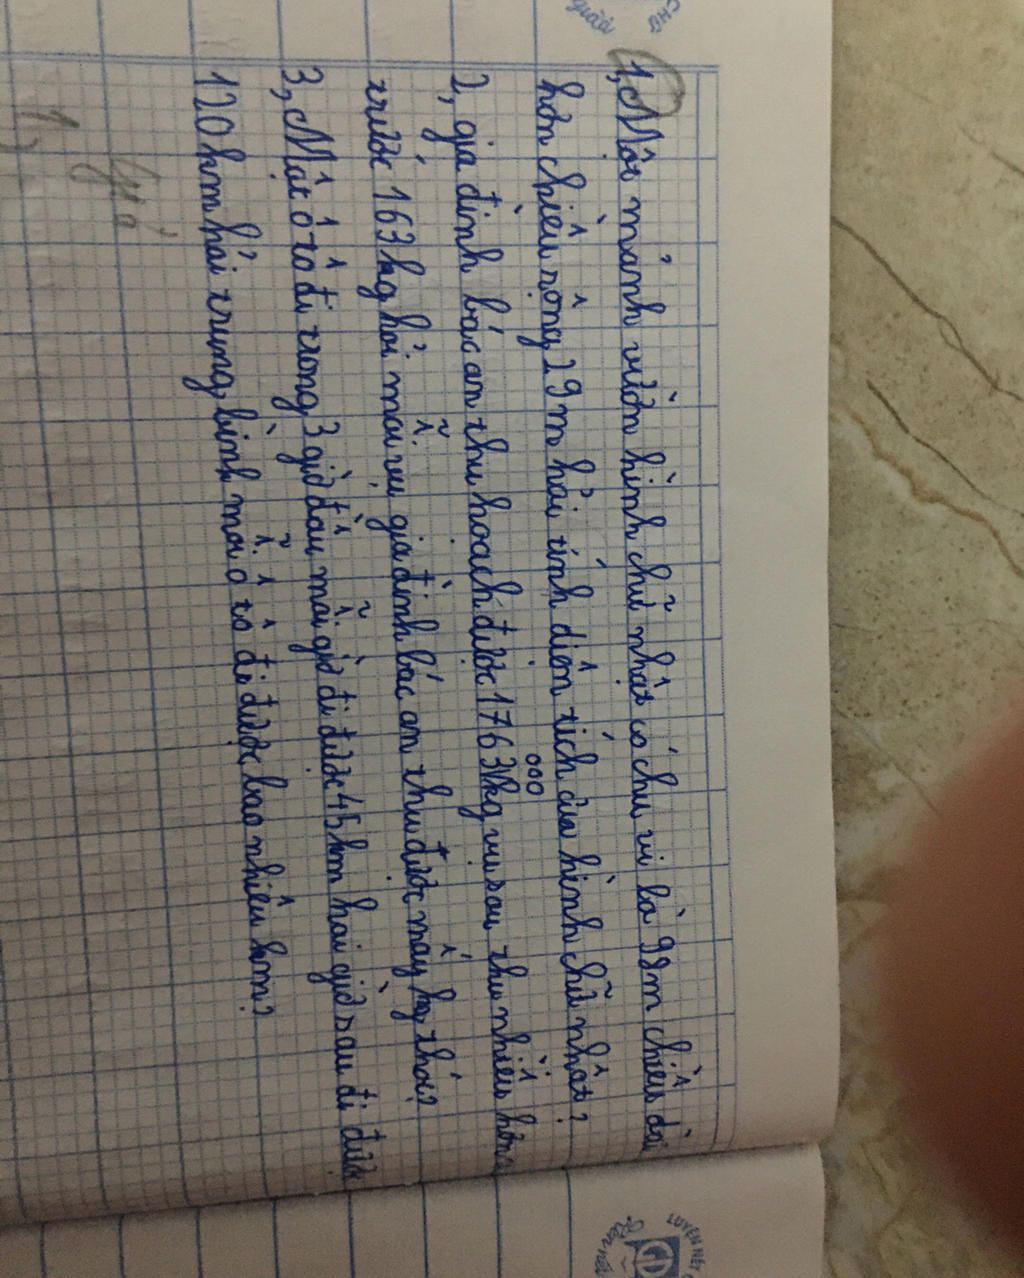 1, Một mảnh vườn hình chữ nhật có chu vi là 98m chiều dài
hơn chiều rộng 29m hỏi tính diện tích của hình chữ nhật?
2, gia đình bác an thu hoạch được 1763kg vụ sau thu nhiều hơn
trước 163kg hỏi mỗi vụ gia đình bác an thu được mấy kg thóc?
3, Một ô tô đi trong 3 giờ đầu mỗi giờ đi được 45km hai giờ sau đi được
120km hỏi trung bình mỗi ô tô đi được bao nhiêu km?
Giải
1,
LUYỆN NÉT